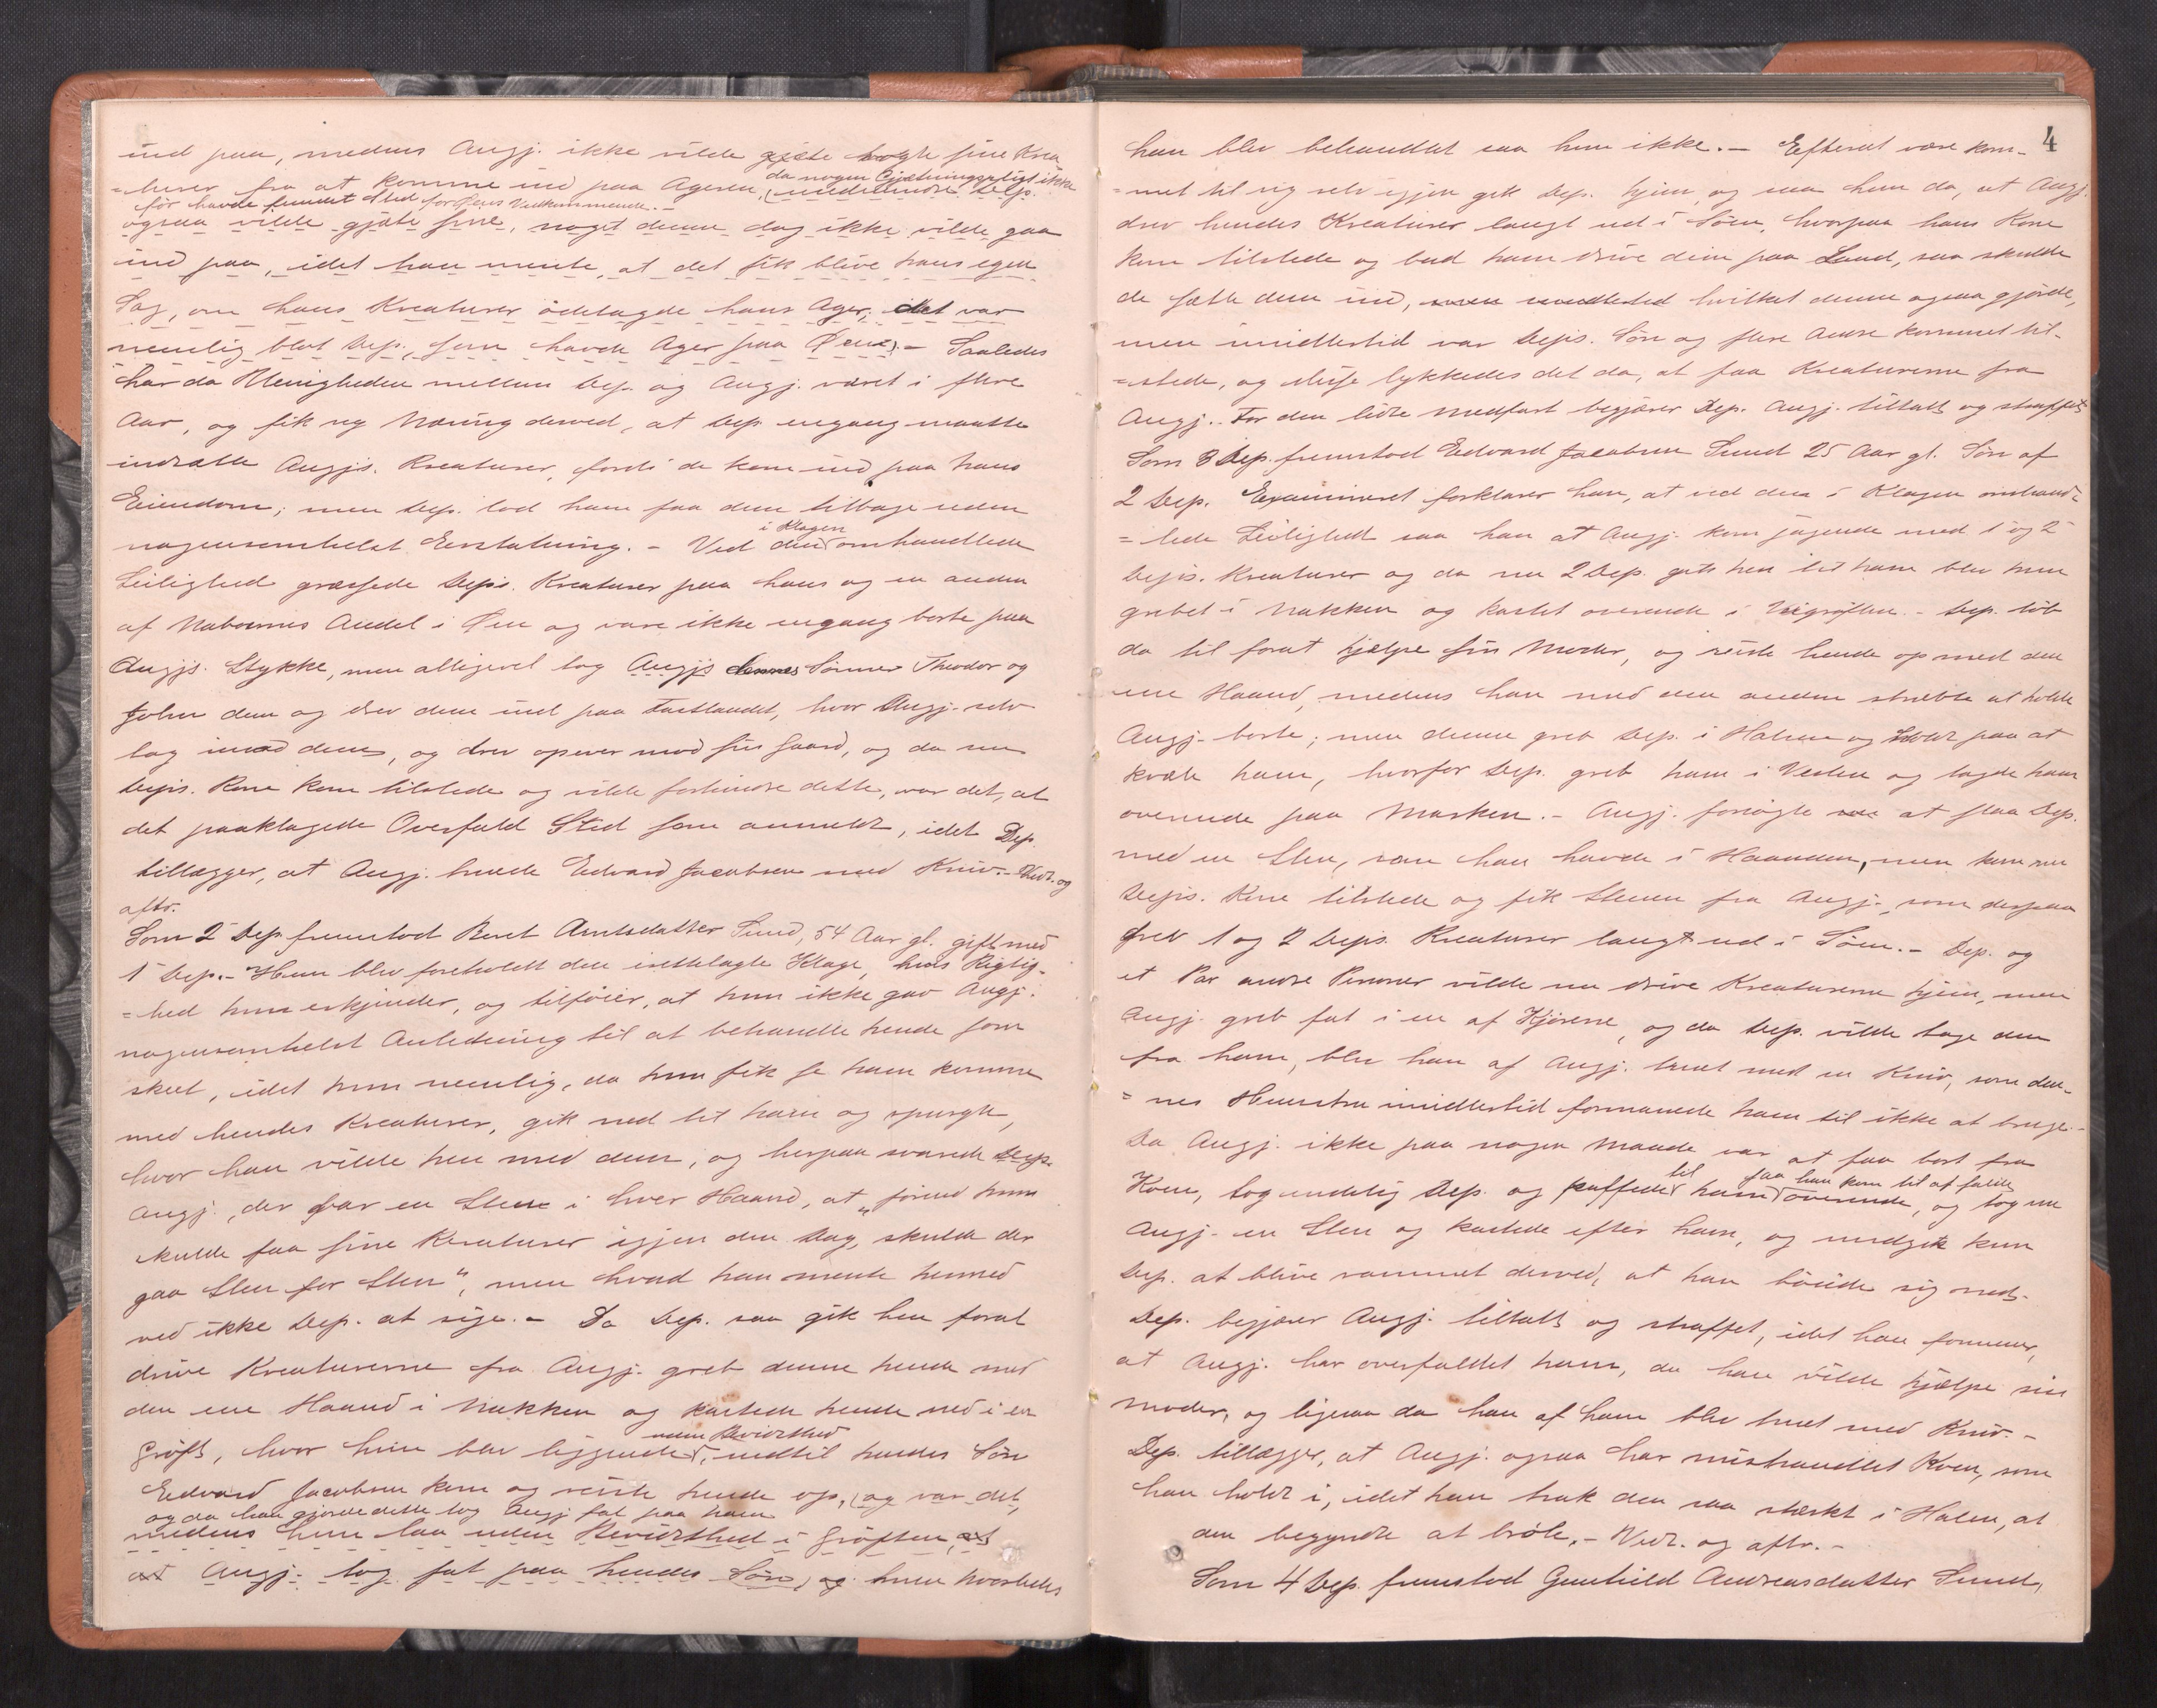 ind paa, medens Angj. ikke vilde gjæte sine Krea-
=turer fra at komme ind paa Ageren, da nogen Gjætningspligt ikke
før havde fundet Sted for deres Vedkommende. – medmindre Dep.
ogsaa vilde gjæte sine, noget denne dog ikke vilde gaa
ind paa, idet han mente, at det fik blive hans egen
Sag, om hans Kreaturer ødelagde hans Ager; det var
nemlig blot Dep., som havde Ager paa Øen. – Saaledes
har da Uenigheden mellem Dep. og Angj. været i flere
Aar, og fik ny Næring derved, at Dep. engang maatte
indsætte Angjs. Kreaturer, fordi de kom ind paa hans
Eiendom; men Dep. lod ham faa dem tilbage uden
nogensomhelst Erstatning. – Ved den i Klagen omhandlede
Leilighed græssede Deps. Kreaturer paa hans og en anden
af Naboernes Andel i Øen og vare ikke engang borte paa
Angjs. Stykke, men alligevel tog Angjs dennes Sønner Theodor og
John dem og drev dem ind paa Fastlandet, hvor Angj. selv
tog imod dem, og drev opover mod sin Gaard, og da nu
Depis. Kone kom tilstede og vilde forhindre dette, var det, at
det paaklagede Overfald Sted som anmeldt, idet Dep.
tillægger, at Angj. truede Edvard Jacobsen med Kniv. – Vedt. og
aftr.
Som 2 Dep. fremstod Beret Arntsdatter Sund, 54 Aar gl. gift med
1 Dep. – Hun blev foreholdt den irettelagte Klage, hvis Rigtig-
=hed hun erkjender, og tilføier, at hun ikke gav Angj.
nogensomhelst Anledning til at behandle hende som
skeet, idet hun nemlig, da hun fik se ham komme
med hendes Kreaturer, gik ned til ham og spurgte,
hvor han vilde hen med dem, og herpaa svarede Dep.
Angj., der bar en Sten i hver Haand, at „førend hun
skulde faa sine Kreaturer igjen den Dag, skulde der
gaa Sten for Sten“, men hvad han mente hermed
ved ikke Dep. at sige. – Da Dep. saa gik hen forat
drive Kreaturerne fra Angj. greb denne hende med
den ene Haand i Nakken og kastede hende ned i en
Grøft, hvor hun blev liggende uden Bevidsthed, indtil hendes Søn
Edvard Jacobsen kom og reiste hende op, og var det,
og da han gjorde dette tog Angj. fat paa ham
medens hun laa uden Bevidsthed i Grøften, at
at Angj. tog fat paa hendes Søn, og hvorledes
4
han blev behandlet saa hun ikke. – Efterat være kom-
=met til sig selv igjen gik Dep. hjem, og saa hun da, at Angj.
drev hendes Kreaturer langt ud i Søen, hvorpaa hans Kone
kom tilstede og bad ham drive dem paa Land, saa skulde
de sætte dem ind, men imidlertid hvilket denne ogsaa gjorde,
men imidlertid var Depis. Søn og flere Andre kommet til-
=stede, og disse lykkedes det da, at faa Kreaturerne fra
Angj. – For den lidte Medfart begjærer Dep. Angj. tiltalt og straffet.
Som 3 Dep. fremstod Edvard Jacobsen Sund 25 Aar gl. Søn af
2 Dep. Examineret forklarer han, at ved den i Klagen omhand-
=lede Leilighed saa han at Angj. kom jagende med 1 og 2
Depis. Kreaturer og da nu 2 Dep. gik hen til ham blev hun
grebet i Nakken og kastet overende i Veigrøften. – Dep. løb
da til forat hjælpe sin Moder, og reiste hende op med den
ene Haand, medens han med den anden stræbte at holde
Angj. borte; men denne greb Dep. i Halsen og holdt paa at
kvæle ham, hvorfor Dep. greb ham i Vesten og lagde ham
overende paa Marken. – Angj. forsøgte at slaa Dep.
med en Sten, som han havde i Haanden, men kom nu
Depis. Kone tilstede og fik Stenen fra Angj., som derpaa
drev 1 og 2 Depis Kreaturer langt ud i Søen. – Dep. og
et Par andre Personer vilde nu drive Kreaturerne hjem, men
Angj. greb fat i en af Kjørene, og da Dep. vilde tage den
fra ham, blev han af Angj. truet med en Kniv, som den-
=nes Hustru imidlertid formanede ham til ikke at bruge. –
Da Angj. ikke paa nogen Maade var at faa bort fra
Koen, tog endelig Dep. og puffede til ham saa han kom til at falde overende, og tog nu
Angj. en Sten og kastede efter ham, og undgik kun
Dep. at blive rammet derved, at han bøiede sig ned. –
Dep. begjærer Angj. tiltalt og straffet, idet han formener,
at Angj. har overfaldet ham, da han vilde hjælpe sin
Moder, og ligesaa da han af ham blev truet med Kniv. –
Dep. tillægger, at Angj. ogsaa har mishandlet Koen, som
han holdt i, idet han trak den saa stærkt i Halen, at
den begyndte at brøle. – Vedt. og aftr. –
Som 4 Dep. fremstod Gunhild Andreasdatter Sund,